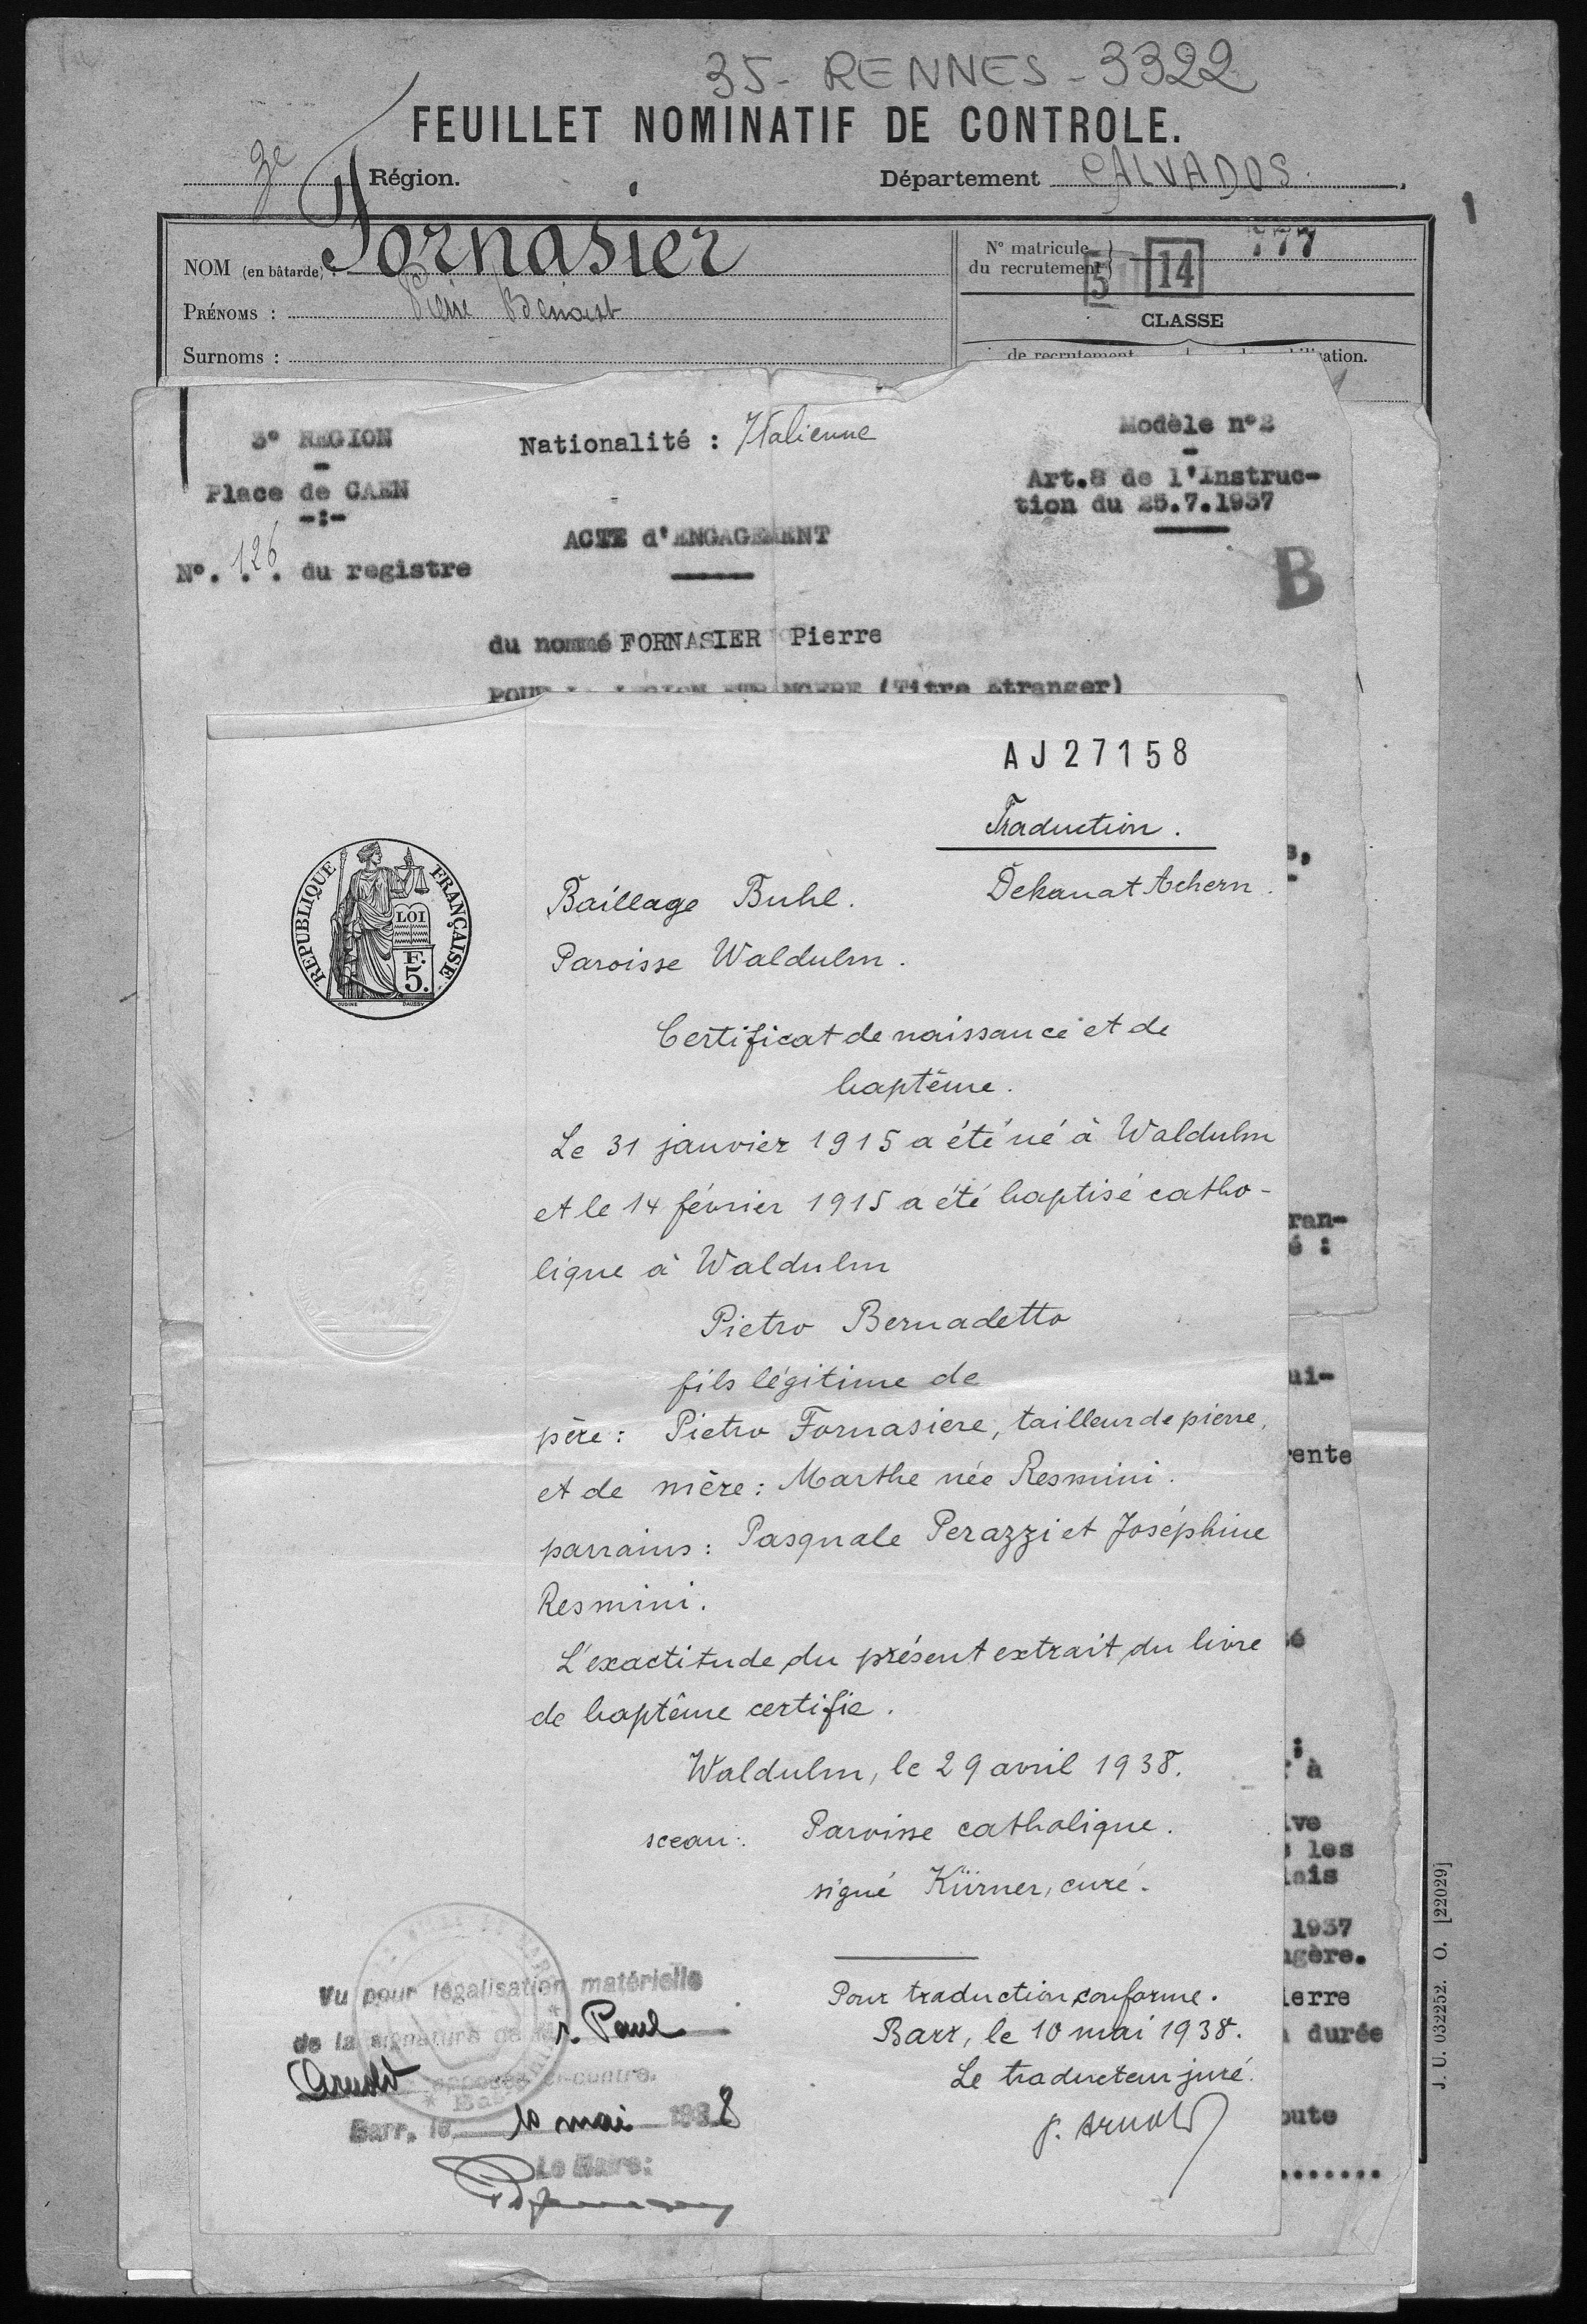 35 - RENNES - 3322
FEUILLET NOMINATIF DE CONTROLE.
3e Région.
Département CALVADOS.
1
NOM (en bâtarde) : Fornasier
PRÉNOMS : Pierre Benoist
Surnoms :
N° matricule du recrutement
777
5
14
CLASSE
de recrutement
3° REGION
-
Place de CAEN
-:-
N°. 126 . du registre
Nationalité : Italienne
ACTE d'ENGAGEMENT
Modèle n°2
-
Art.8 de l'Instruc-
tion du 25.7.1937
B
du nommé FORNASIER Pierre
(Titre Etranger)
AJ27158
Traduction.
Baillage Buhl.
Dekanat Achern.
Paroisse Waldulm.
REPUBLIQUE FRANÇAISE
LOI
F.
5.
Certificat de naissance et de
baptême.
Le 31 janvier 1915 a été né à Waldulm
et le 14 février 1915 a été baptisé catho-
lique à Waldulm
Pietro Bernadetto
fils légitime de
père : Pietro Fornasiere, tailleur de pierre,
et de mère : Marthe née Resmini.
parrains : Pasquale Perazzi et Joséphine
Resmini.
L'exactitude du présent extrait du livre
de baptême certifie.
Waldulm, le 29 avril 1938.
sceau : Paroisse catholique.
signé Kürner, curé.
Pour traduction conforme.
Barr, le 10 mai 1938.
Le traducteur juré.
P. Arnold
Vu pour légalisation matérielle
de la signature de Mr. Paul
Arnold apposée ci-contre.
Barr, le 10 mai 1938
Le Maire:
s,
-
ran-
é :
ui-
rente
sé
;
à
ive
les
lais
1937
ngère.
ierre
durée
oute
.......
J. U. 032252. O. [22029]